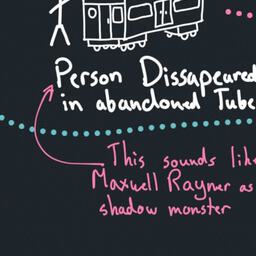 Person Dissapeared
in abandoned Tube
This sounds like
Maxwell Rayner as
shadow monster